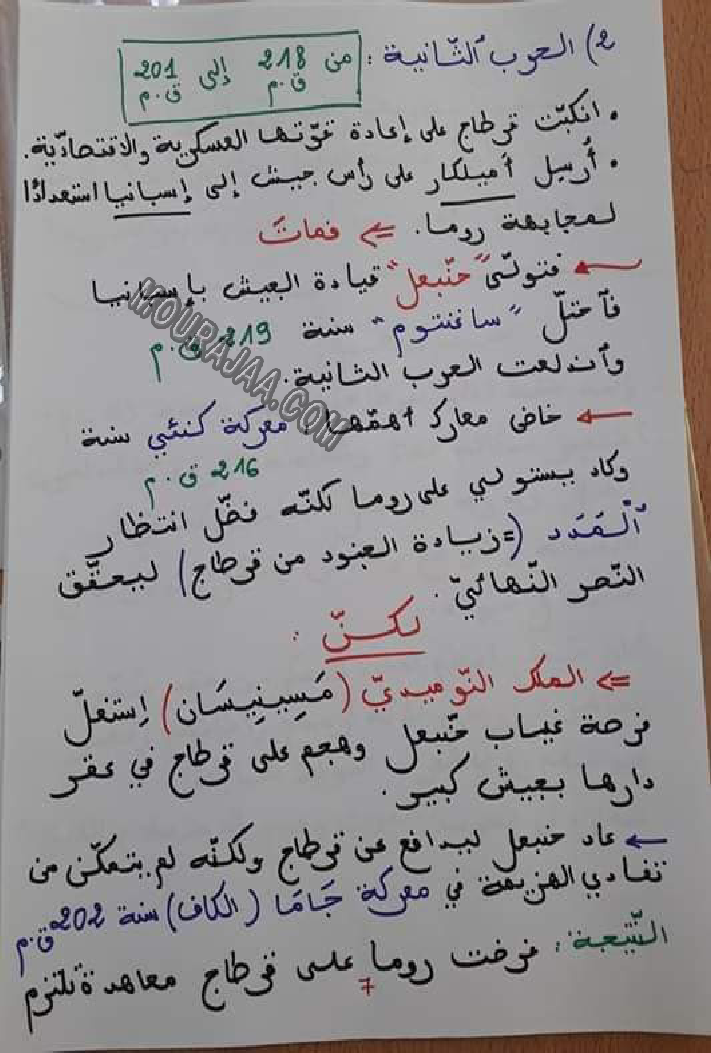 2) الحرب الثّانية : من 218 ق.م إلى 201 ق.م
• انكبّت قرطاج على إعادة قوّتها العسكرية والاقتصاديّة.
• أُرسِل أميلكار على رأس جيش إلى إسبانيا استعدادًا
لمجابهة روما. ⇐ فماتَ
← فتولّى "حنّبعل" قيادة الجيش بإسبانيا
فآحتلّ "ساغنتوم" سنة 219 ق.م
وأندلعت الحرب الثانية.
← خاض معارك أهمّها معركة كنئي سنة
216 ق.م
وكاد يستولي على روما لكنّه فضّل انتظار
ٱلْمَدَد (= زيادة الجنود من قرطاج) ليحقّق
النّصر النّهائيّ.
لكنّ :
⇐ الملك النّوميديّ (مَسِينِيسَان) اِستغلّ
فرصة غياب حنّبعل وهجم على قرطاج في عقر
دارها بجيش كبير.
← عاد حنبعل ليدافع عن قرطاج ولكنّه لم يتمكّن من
تفادي الهزيمة في معركة جَامَا (الكاف) سنة 202 ق.م
النّتيجة : فرضت روما على قرطاج معاهدة تلتزم
7
MOURAJAA.COM